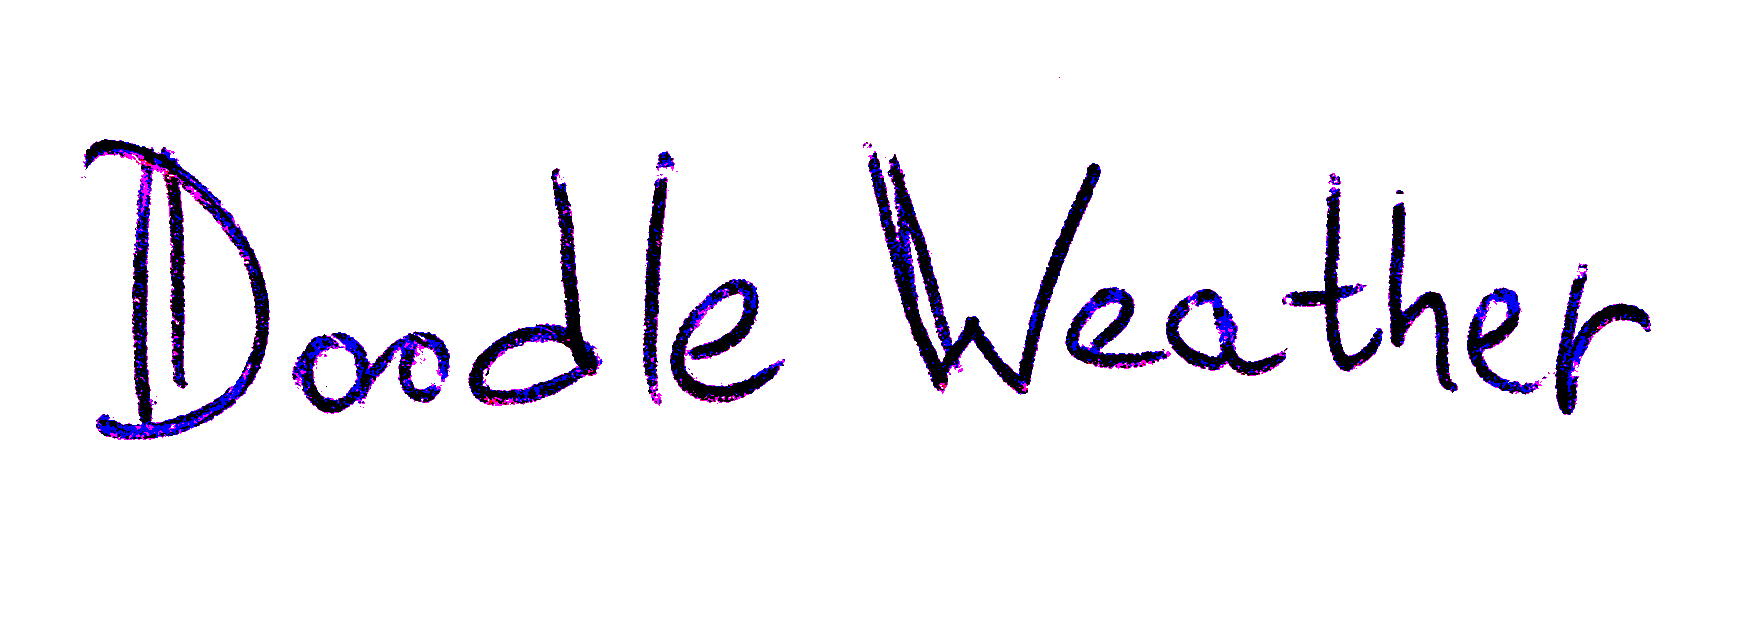 Doodle Weather